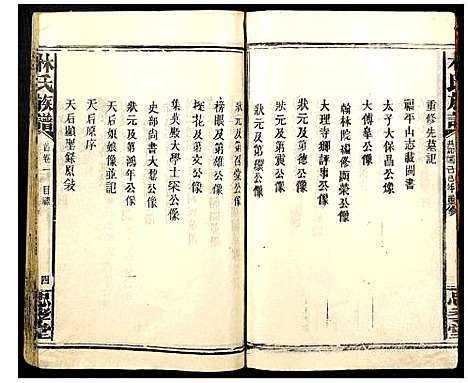 林氏族譜
重修先墓記
福平山志載閩書
太子太保昌公像
大傅皋公像
翰林院編修顯榮公像
大理寺卿評事公像
狀元及第德公像
狀元及第震公像
狀元及第環公像
狀元及第百堂公像
榜眼及第雄公像
探花及第文公像
集英殿大學士榮公像
吏部尚書大慈公像
狀元及第鴻年公像
天后娘娘像並記
天后原序
天后顯聖錄原敘
林氏族譜
首卷一
目錄
四